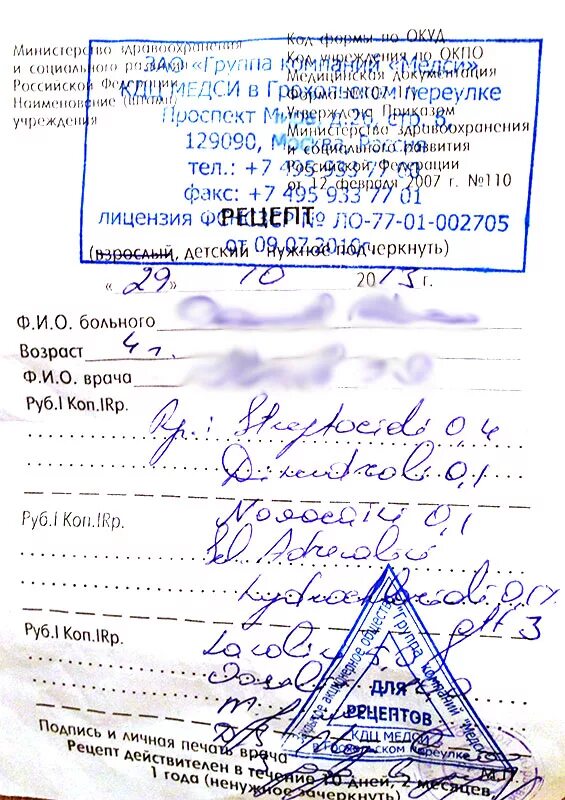 Министерство здравоохранения
и социального развития
Российской Федерации
Наименование (штамп)
учреждения
Код формы по ОКУД
Код учреждения по ОКПО
Медицинская документация
Утверждена Приказом
Министерства здравоохранения
и социального развития
Российской Федерации
от 12 февраля 2007 г. №110
ЗАО «Группа компаний «Медси»
КДЦ МЕДСИ в Грохольском переулке
Проспект Мира, д.26, стр. 6,
129090, Москва, Россия
тел.: +7 495 933 77 00
факс: +7 495 933 77 01
лицензия № ЛО-77-01-002705
от 09.07.2010г.
РЕЦЕПТ
(взрослый, детский нужное подчеркнуть)
«29» 10 2013 г.
Ф.И.О. больного
Возраст 4 г.
Ф.И.О. врача
Руб.I Коп.IRp.
Rp.: Streptocidi 0,4
Dimedroli 0,1
Руб.I Коп.IRp.
Novocaini 0,1
Sol Adrenalini
hydrochloridi 0,1%
gtt 3
Руб.I Коп.IRp.
Закрытое акционерное общество "Группа компаний "Медси"
ДЛЯ
РЕЦЕПТОВ
КДЦ МЕДСИ
в Грохольском переулке
Подпись и личная печать врача
М.П.
Рецепт действителен в течение 10 дней, 2 месяцев,
1 года (ненужное зачеркнуть)